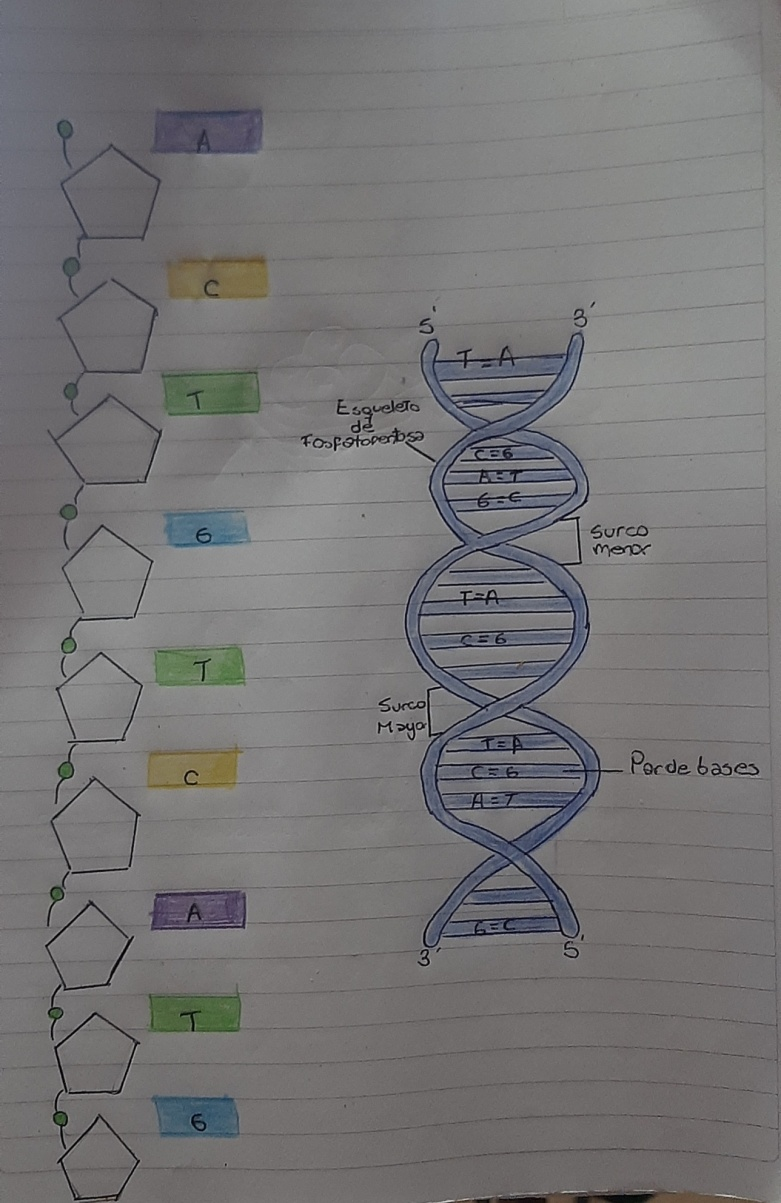 A
C
T
G
T
C
A
T
G
5' 3'
T=A
Esqueleto
de
Fosfotopentosa
C=G
A=T
G=C
Surco
menor
T=A
C=G
Surco
Mayor
T=A
C=G
Par de bases
A=T
G=C
3' 5'